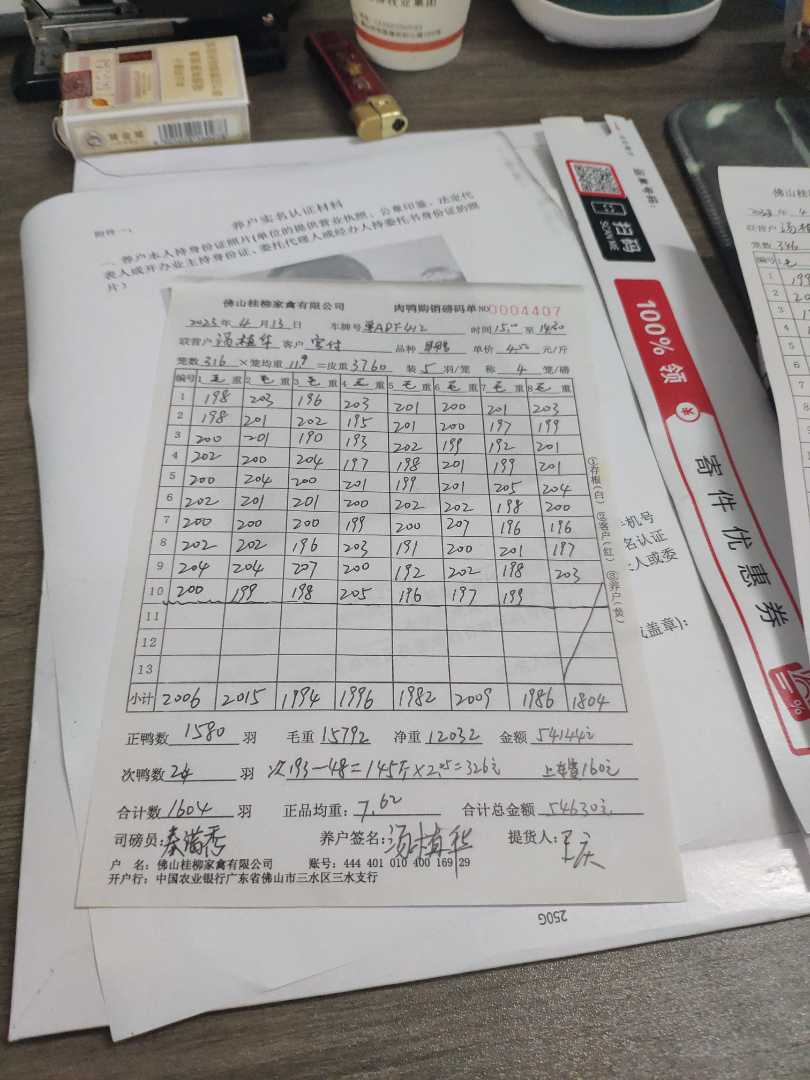 养户实名认证材料
附件一、
一、养户本人持身份证照片(单位的提供营业执照、公章印鉴、法定代
表人或开办业主持身份证、委托代理人或经办人持委托书身份证的照
片)
佛山桂柳家禽有限公司 肉鸭购销磅码单 NO 0004407
2023年4月13日 车牌号 时间 15:00 至
联营户 汤植华 客户 品种 单价 4.50 元/斤
笼数 316 ×笼均重 11.9 =皮重 3760 装 5 羽/笼 称 4 笼/磅
编号 1 毛 重 2 毛 重 3 毛 重 4 毛 重 5 毛 重 6 毛 重 7 毛 重 8 毛 重
1 198 203 196 203 201 200 201 203
2 198 201 202 195 201 200 197 199
3 200 201 190 193 202 199 192 201
4 202 200 204 197 198 201 199 201
5 200 204 200 201 199 201 205 204
6 202 201 201 200 202 202 198 200
7 200 200 200 199 200 207 196 196
8 202 202 196 203 191 200 201 197
9 204 204 207 200 192 202 198 203
10 200 199 198 205 196 197 199
11
12
13
小计 2006 2015 1994 1996 1982 2009 1986 1804
①存根(白) ②客户(红) ③养户(黄)
正鸭数 1580 羽 毛重 15792 净重 12032 金额 54144元
次鸭数 24 羽 次193-48=145斤×2.25=326元 上车费160元
合计数 1604 羽 正品均重: 7.62 合计总金额 54630元
司磅员: 养户签名: 汤植华 提货人: 王庆
户 名: 佛山桂柳家禽有限公司 账号: 444 401 010 400 169 29
开户行: 中国农业银行广东省佛山市三水区三水支行
扫码
SCAN ME
100% 领
寄件优惠券
机号
名认证
人或委
盖章):
250G
佛山桂
联营户 汤植
笼数 346
编号